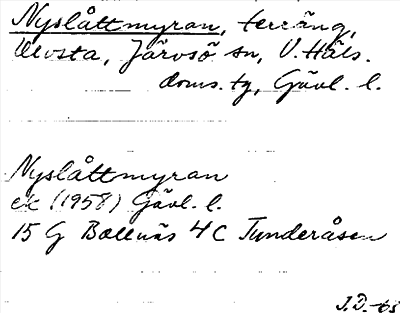 Nyslåttmyran, terräng,
Ulvsta, Järvsö sn, V. Häls.
doms. tg, Gävl. l.
Nyslåttmyran
ek (1958) Gävl. l.
15 G Bollnäs 4 C Tunderåsen
J.D.-63